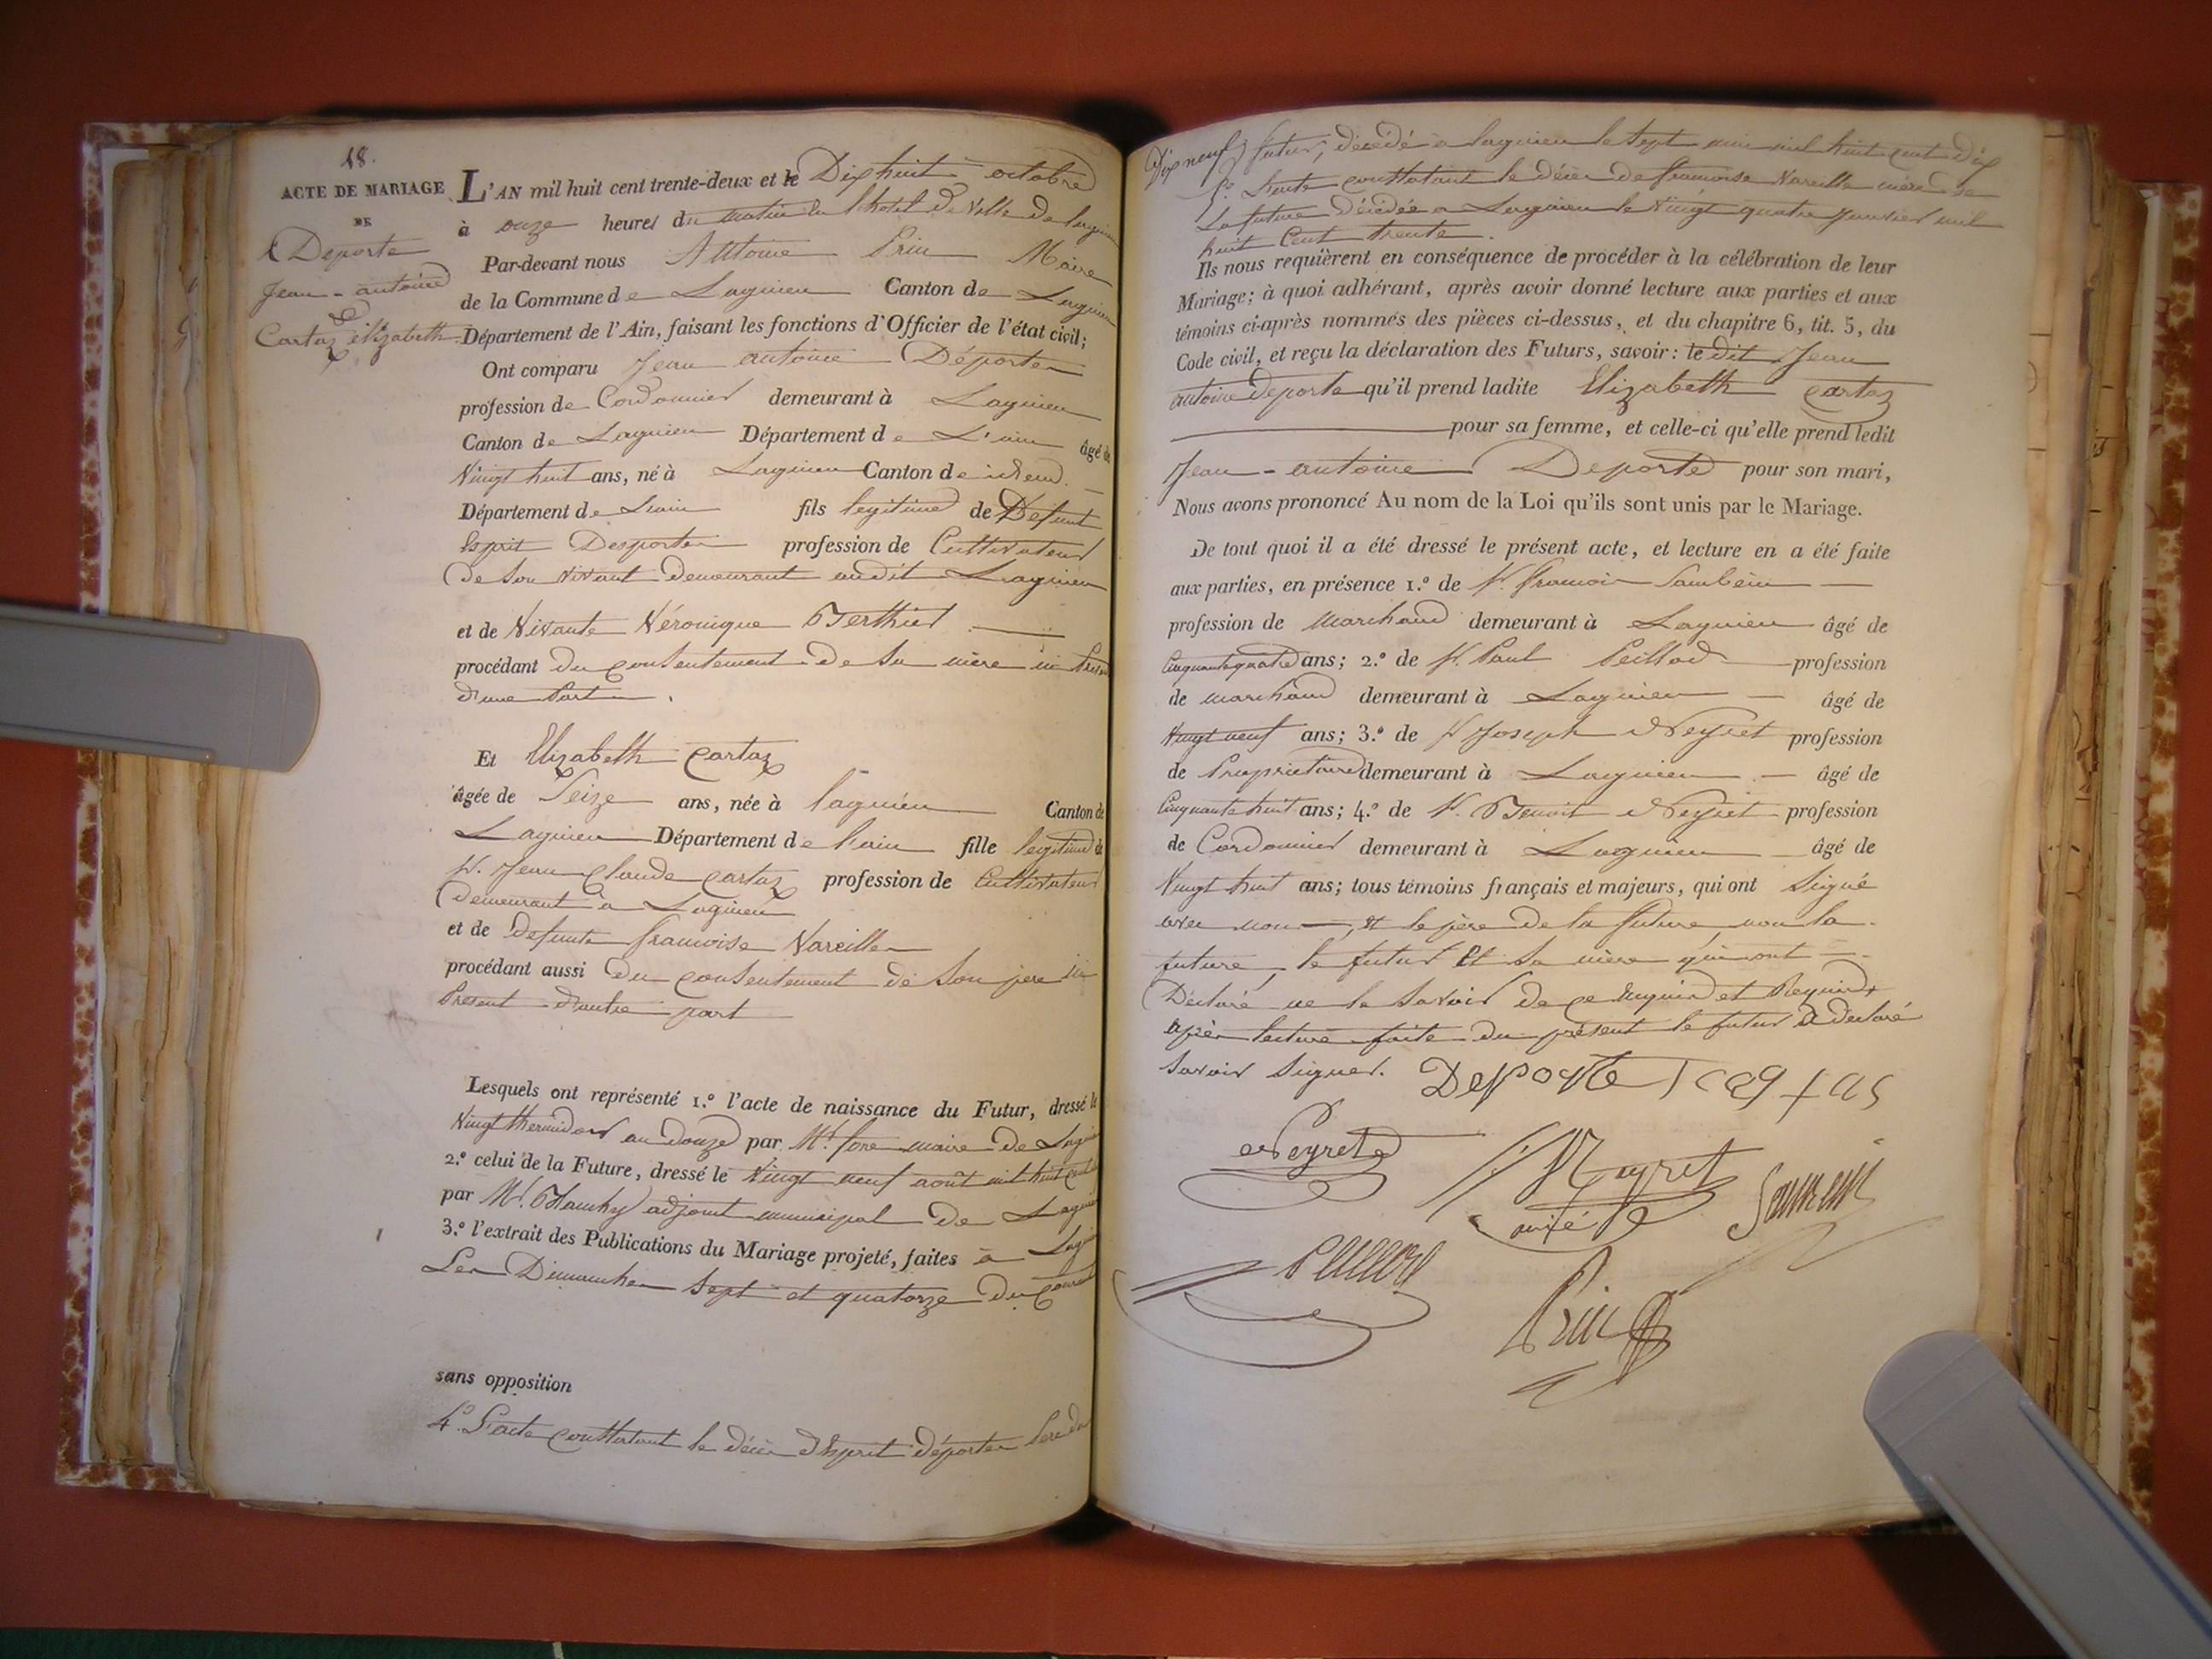 18.
ACTE DE MARIAGE
DE
Deporte
Jean-antoine
&
Cartaz élizabeth
L'AN mil huit cent trente-deux et le Dix huit octobre
à onze heures du matin en l'hotel de Ville de Lagnieu
Par-devant nous Antoine Prin Maire
de la Commune de Lagnieu Canton de Lagnieu
Département de l'Ain, faisant les fonctions d'Officier de l'état civil;
Ont comparu Jean antoine Déporter
profession de Cordonnier demeurant à Lagnieu
Canton de Lagnieu Département de L'ain âgé de
Vingt huit ans, né à Lagnieu Canton de idem
Département de Lain fils legitime de Defunt
Esprit Desporter profession de Cultivateur
de Son vivant demeurant audit Lagnieu
et de Vivante Véronique Berthier
procédant du consentement de Sa mère ici
d'une Part.
Et Elizabeth Cartaz
âgée de Seize ans, née à lagnieu Canton de
Lagnieu Département de l'ain fille legitime de
Sr. Jean Claude Cartaz profession de Cultivateur
demeurant à Lagnieu
et de defunte francoise Vareille
procédant aussi du consentement de Son pere ici
Présent d'autre part
Lesquels ont représenté 1.º l'acte de naissance du Futur, dressé le
Vingt thermidor an douze par Mr. maire de Lagnieu
2.º celui de la Future, dressé le Vingt neuf août mil huit cent
par Mr. adjoint municipal de Lagnieu
3.º l'extrait des Publications du Mariage projeté, faites à
Les Dimanches Sept et quatorze du courant
sans opposition
4.º L'acte constatant le décès d'Esprit déporter Pere du
Dix neuf futur, décédé à lagnieu le Sept mil huit cent dix
5.º constatant le décès de francoise Vareille mère de
La future Décédée à Lagnieu le Vingt quatre Janvier mil
huit Cent trente.
Ils nous requièrent en conséquence de procéder à la célébration de leur
Mariage; à quoi adhérant, après avoir donné lecture aux parties et aux
témoins ci-après nommés des pièces ci-dessus, et du chapitre 6, tit. 5, du
Code civil, et reçu la déclaration des Futurs, savoir: le dit Jean
antoine deporte qu'il prend ladite Elizabeth Cartaz
pour sa femme, et celle-ci qu'elle prend ledit
Jean-antoine Deporte pour son mari,
Nous avons prononcé Au nom de la Loi qu'ils sont unis par le Mariage.
De tout quoi il a été dressé le présent acte, et lecture en a été faite
aux parties, en présence 1.º de Sr. francois
profession de marchand demeurant à Lagnieu âgé de
Cinquante quatre ans; 2.º de Sr. Paul Peillod profession
de marchand demeurant à Lagnieu âgé de
Vingt neuf ans; 3.º de Sr Joseph Neyret profession
de Propriétaire demeurant à Lagnieu âgé de
Cinquante huit ans; 4.º de Sr. Benoit Neyret profession
de Cordonnier demeurant à Lagnieu âgé de
Vingt huit ans; tous témoins français et majeurs, qui ont Signé
avec nous, et le père de la future, non la
future, le futur et Sa mère qui ont
Déclaré ne le Savoir de ce Enquis et Requis
après lecture faite du présent le futur a declaré
Savoir Signer. Deporte
Neyret
Neyret
Peillod
Prin